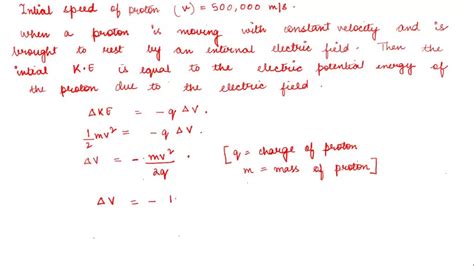 Intial speed of proton (v) = 500,000 m/s.
When a proton is moving with constant velocity and is
brought to rest by an internal electric field. Then the
intial K.E is equal to the electric potential energy of
the proton due to the electric field.
ΔKE = -q ΔV.
1/2 mv² = -q ΔV.
ΔV = - mv²/2q . [q = charge of proton
m = mass of proton]
ΔV = - 1.